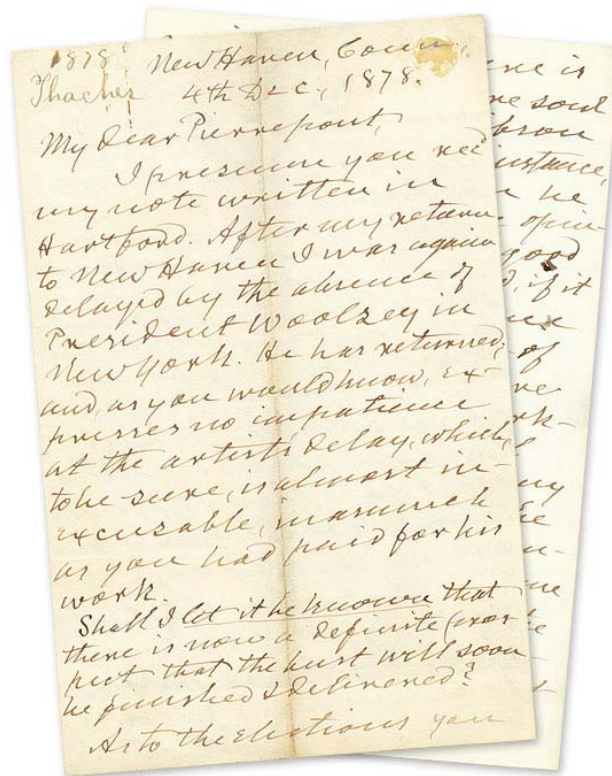 1878
Thacher
New Haven, Conn.,
4th Dec., 1878.
My dear Pierrepont,
I presume you rec'd
my note written in
Hartford. After my return
to New Haven I was again
delayed by the absence of
President Woolsey in
New York. He has returned,
and, as you would know, ex-
presses no impatience
at the artist's delay, which,
to be sure, is almost in-
excusable, inasmuch
as you had paid for his
work.
Shall I let it be known that
there is now a definite pros
pect that the bust will soon
be finished & delivered?
As to the elections you
ere is
re soul
bson
instance,
he
opin-
good
d, if it
of
re
rk-
ny
he
me
he